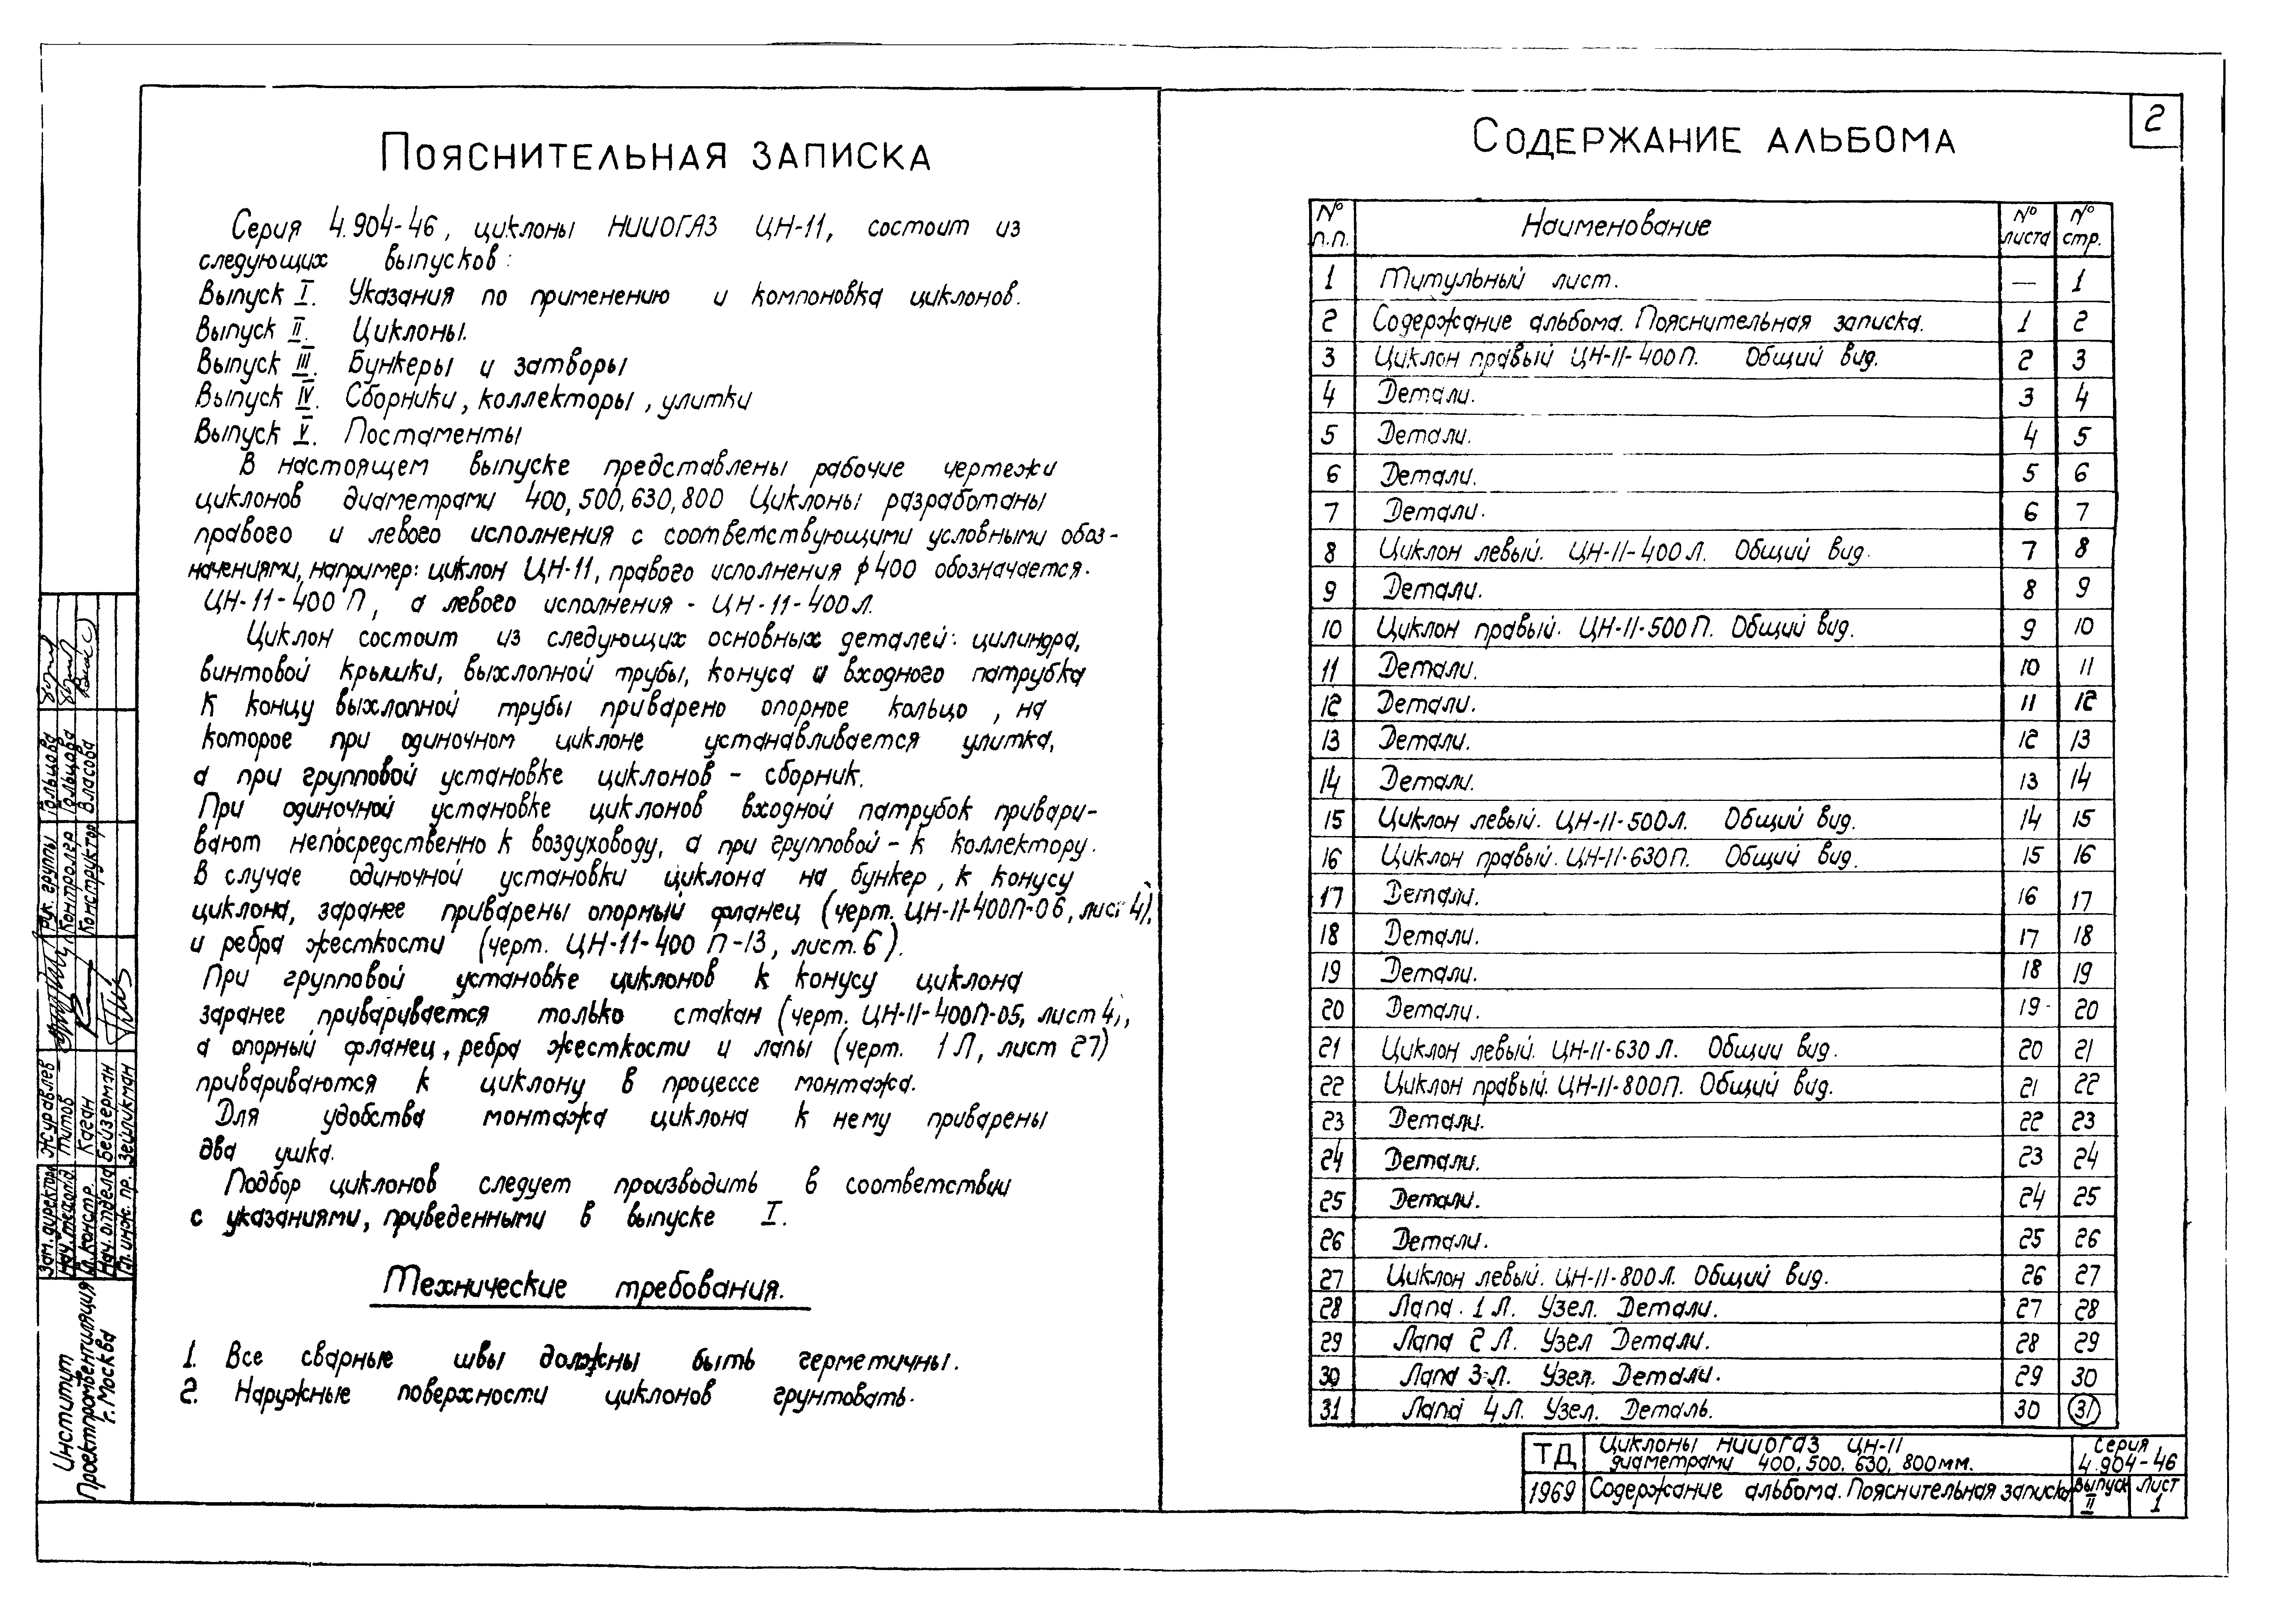 2
Пояснительная записка
Серия 4.904-46, циклоны НИИОГАЗ ЦН-11, состоит из
следующих выпусков:
Выпуск I. Указания по применению и компоновка циклонов.
Выпуск II. Циклоны.
Выпуск III. Бункеры и затворы
Выпуск IV. Сборники, коллекторы, улитки
Выпуск V. Постаменты
В настоящем выпуске представлены рабочие чертежи
циклонов диаметрами 400, 500, 630, 800 Циклоны разработаны
правого и левого исполнения с соответствующими условными обоз-
начениями, например: циклон ЦН-11, правого исполнения ϕ400 обозначается.
ЦН-11-400 П, а левого исполнения - ЦН-11-400Л.
Циклон состоит из следующих основных деталей: цилиндра,
винтовой крышки, выхлопной трубы, конуса и входного патрубка
К концу выхлопной трубы приварено опорное кольцо, на
которое при одиночном циклоне устанавливается улитка,
а при групповой установке циклонов - сборник.
При одиночной установке циклонов входной патрубок привари-
вают непосредственно к воздуховоду, а при групповой - к коллектору.
В случае одиночной установки циклона на бункер, к конусу
циклона, заранее приварены опорный фланец (черт. ЦН-11-400П-06, лист 4),
и ребра жесткости (черт. ЦН-11-400 П-13, лист. 6).
При групповой установке циклонов к конусу циклона
заранее приваривается только стакан (черт. ЦН-11-400П-05, лист 4),
а опорный фланец, ребра жесткости и лапы (черт. 1Л, лист 27)
привариваются к циклону в процессе монтажа.
Для удобства монтажа циклона к нему приварены
два ушка.
Подбор циклонов следует производить в соответствии
с указаниями, приведенными в выпуске I.
Технические требования.
1. Все сварные швы должны быть герметичны.
2. Наружные поверхности циклонов грунтовать.
Содержание альбома
№ п.п. Наименование № листа № стр.
1 Титульный лист. — 1
2 Содержание альбома. Пояснительная записка. 1 2
3 Циклон правый ЦН-11-400П. Общий вид. 2 3
4 Детали. 3 4
5 Детали. 4 5
6 Детали. 5 6
7 Детали. 6 7
8 Циклон левый. ЦН-11-400Л. Общий вид. 7 8
9 Детали. 8 9
10 Циклон правый. ЦН-11-500П. Общий вид. 9 10
11 Детали. 10 11
12 Детали. 11 12
13 Детали. 12 13
14 Детали. 13 14
15 Циклон левый. ЦН-11-500Л. Общий вид. 14 15
16 Циклон правый. ЦН-11-630П. Общий вид. 15 16
17 Детали. 16 17
18 Детали. 17 18
19 Детали. 18 19
20 Детали. 19 20
21 Циклон левый. ЦН-11-630Л. Общий вид. 20 21
22 Циклон правый. ЦН-11-800П. Общий вид. 21 22
23 Детали. 22 23
24 Детали. 23 24
25 Детали. 24 25
26 Детали. 25 26
27 Циклон левый. ЦН-11-800Л. Общий вид. 26 27
28 Лапа. 1Л. Узел. Детали. 27 28
29 Лапа 2Л. Узел Детали. 28 29
30 Лапа 3-Л. Узел. Детали. 29 30
31 Лапа 4Л. Узел. Деталь. 30 31
ТД Циклоны НИИОГАЗ ЦН-11 диаметрами 400, 500, 630, 800мм. Серия 4.904-46
1969 Содержание альбома. Пояснительная записка Выпуск II Лист 1
Институт
Проектпромвентиляция
г. Москва
Зам. директора Журавлев
Нач. техотд. Титов
Гл. констр. Каган
Нач. отдела Бейзерман
Гл. инж. пр. Зейликман
Рук. группы Гольцова
Контролер Гольцова
Конструктор Власова